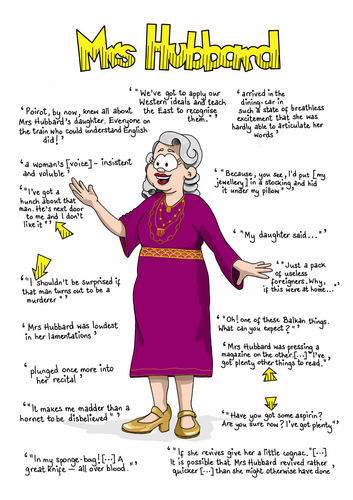 Mrs Hubbard
‘“We've got to apply our
Western ideals and teach
the East to recognise
them.”’
‘Poirot, by now, knew all about
Mrs Hubbard's daughter. Everyone on
the train who could understand English
did!’
‘arrived in the
dining-car in
such a state of breathless
excitement that she was
hardly able to articulate her
words’
‘a woman's [voice] – insistent
and voluble’
‘“Because, you see, I'd put [my
jewellery] in a stocking and hid
it under my pillow”’
‘“I've got a
hunch about that
man. He's next door
to me and I don't
like it”’
‘“My daughter said...”’
‘“I shouldn't be surprised if
that man turns out to be a
murderer”’
‘“Just a pack
of useless
foreigners. Why,
if this were at home...”’
‘“Oh! one of these Balkan things.
What can you expect?”’
‘Mrs Hubbard was loudest
in her lamentations’
‘Mrs Hubbard was pressing a
magazine on the other. [...] “I've
got plenty other things to read.”’
‘plunged once more into
her recital’
‘“It makes me madder than a
hornet to be disbelieved”’
‘“Have you got some aspirin?
Are you sure now? I've got plenty”’
‘“In my sponge-bag! [...] A
great knife – all over blood.”’
‘“If she revives give her a little cognac.” [...]
It is possible that Mrs Hubbard revived rather
quicker [...] than she might otherwise have done’